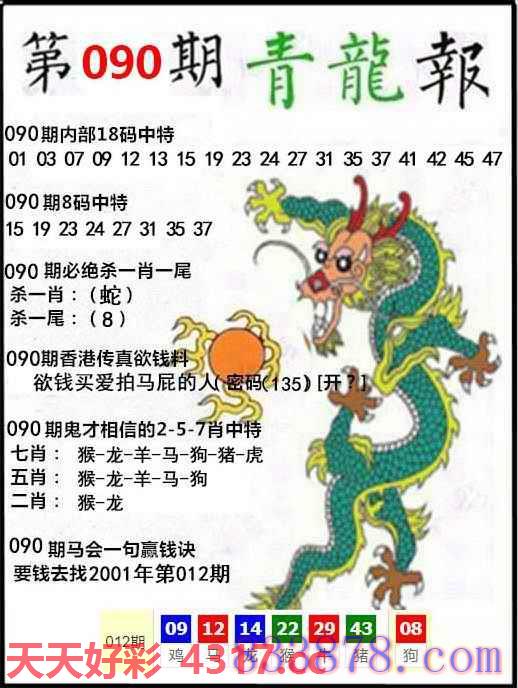 第090期 青龍報
090期内部18码中特
01 03 07 09 12 13 15 19 23 24 27 31 35 37 41 42 45 47
090期8码中特
15 19 23 24 27 31 35 37
090期必绝杀一肖一尾
杀一肖：（蛇）
杀一尾：（8）
090期香港传真欲钱料
欲钱买爱拍马屁的人(密码(135)[开？]
090期鬼才相信的2-5-7肖中特
七肖： 猴-龙-羊-马-狗-猪-虎
五肖： 猴-龙-羊-马-狗
二肖： 猴-龙
090期马会一句赢钱诀
要钱去找2001年第012期
012期 09 12 14 22 29 43 08
鸡 马 龙 猴 牛 猪 狗
天天好彩 4317.cc